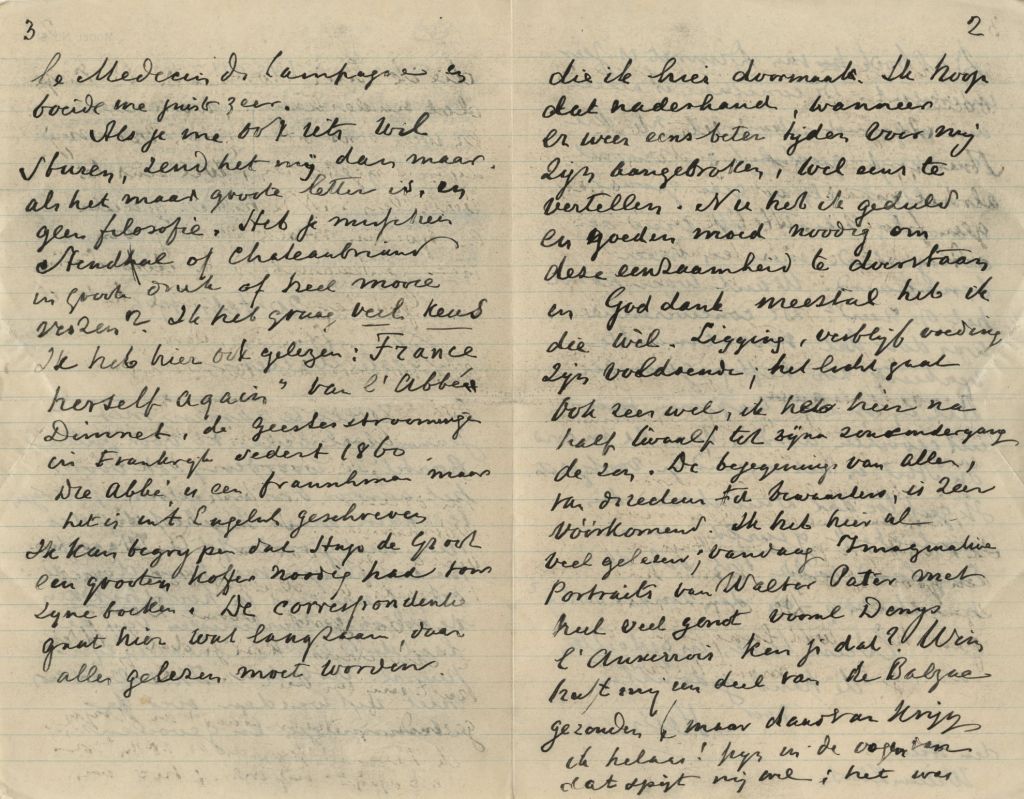 2
die ik hier doormaak. Ik hoop
dat naderhand, wanneer
er weer eens beter tijden voor mij
zijn aangebroken, wel eens te
vertellen. Nu heb ik geduld
en goeden moed noodig om
deze eenzaamheid te doorstaan
en God dank meestal heb ik
die wèl. Ligging, verblijf voeding
zijn voldoende; het licht gaat
ook zeer wel, ik heb hier na
half twaalf tot zijne zonsondergang
de zon. De bejegening van allen,
van directeur tot bewaarders, is zeer
vóórkomend. Ik heb hier al
veel gelezen; vandaag Imaginative
Portraits van Walter Pater met
heel veel genot vooral Denys
l'Auxerrois ken je dat? Wim
heeft mij een deel van de Balzac
gezonden, maar daarvan krijg
ik helaas! pijn in de oogen en
dat spijt mij wel; het was
3
le Medecin de Campagne en
boeide me juist zeer.
Als je me ook iets wil
sturen, zend het mij dan maar.
als het maar groote letter is, en
geen filosofie. Heb je misschien
Stendhal of Chateaubriand
in groote druk of heel mooie
verzen? Ik heb graag veel keus
Ik heb hier ook gelezen: France
herself again" van l'Abbé
Dimnet, de geestesstroominge
in Frankrijk sedert 1860
Die Abbé is een franschman maar
het is in't Engelsch geschreven
Ik kan begrijpen dat Hugo de Groot
een grooten koffer noodig had voor
zijne boeken. De correspondentie
gaat hier wat langzaam, daar
alles gelezen moet worden